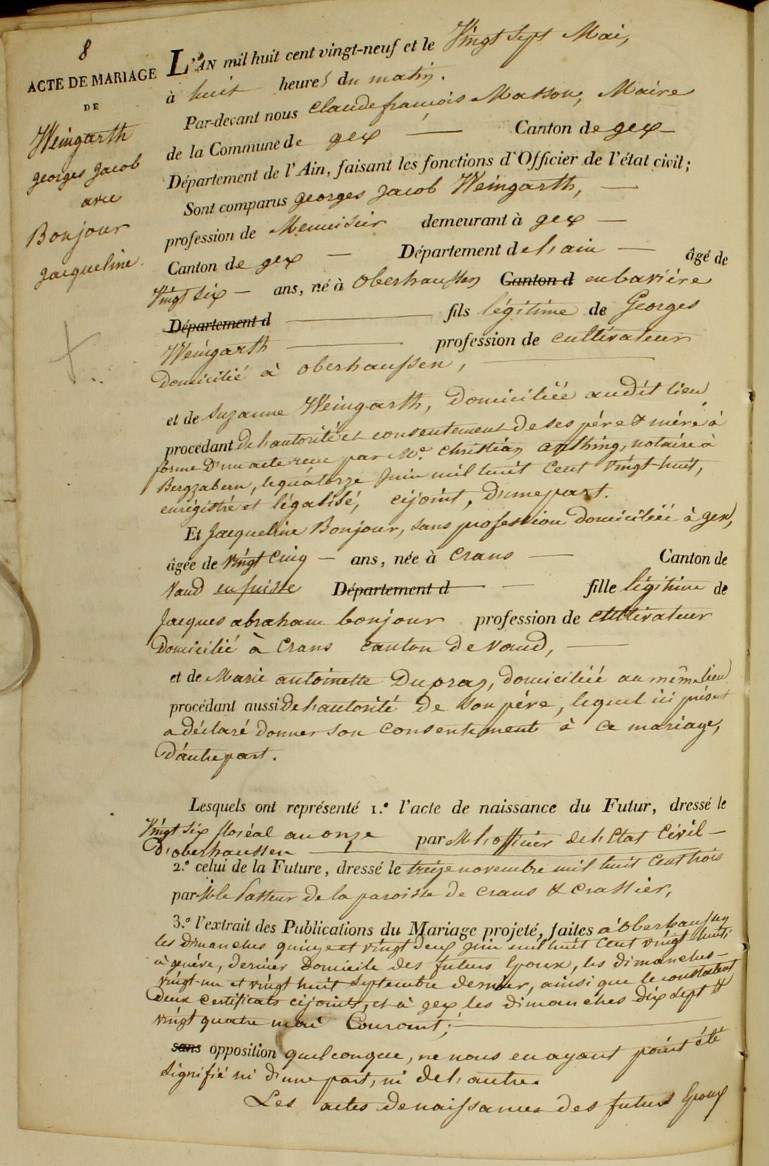 8
ACTE DE MARIAGE
DE
Weingarth
georges Jacob
avec
Bonjour
Jacqueline.
L'AN mil huit cent vingt-neuf et le Vingt Sept Mai,
à huit heures du matin.
Par-devant nous Claude françois Masson, Maire
de la Commune de gex — Canton de gex —
Département de l'Ain, faisant les fonctions d'Officier de l'état civil;
Sont comparus georges Jacob Weingarth, —
profession de Menuisier demeurant à gex —
Canton de gex — Département de l'ain — âgé de
Vingt Six — ans, né à Oberhaussen Canton d en bavière
Département d — fils légitime de Georges
Weingarth — profession de cultivateur
domicilié à oberhaussen, —
et de Suzanne Weingarth, domiciliée audit lieu
procédant de l'autorité et consentement de ses père & mère à
forme d'un acte reçu par Me. Christian, notaire à
Bergzabern, le quatorze Juin mil huit Cent vingt-huit,
enrégistré et légalisé, cijoint, d'une part.
Et Jacqueline Bonjour, sans profession domiciliée à gex,
âgée de vingt cinq — ans, née à Crans — Canton de
Vaud en suisse Département d — fille légitime de
Jacques abraham bonjour profession de cultivateur
Domicilié à Crans canton de Vaud, —
et de Marie antoinette Dupraz, domiciliée au même lieu
procédant aussi de l'autorité de son père, lequel ici présent
a déclaré donner son consentement à ce mariage,
d'autre part.
Lesquels ont représenté 1.º l'acte de naissance du Futur, dressé le
Vingt six floréal an onze par M l'officier de l'Etat Civil —
D'oberhaussen —
2.º celui de la Future, dressé le treize novembre mil huit Cent trois
par le Pasteur de la paroisse de Crans & Crassier,
3.º l'extrait des Publications du Mariage projeté, faites à Oberhaussen
les dimanches quinze et vingt deux juin mil huit Cent vingt huit,
à genève, dernier domicile des futurs Epoux, les dimanches —
vingt-un et vingt huit septembre dernier, ainsi que le constatent
deux Certificats cijoints, et à gex les dimanches dix sept &
vingt quatre mai Courant; —
sans opposition quelconque, ne nous en ayant point été
signifié ni d'une part, ni de l'autre.
Les actes de naissances des futurs Epoux